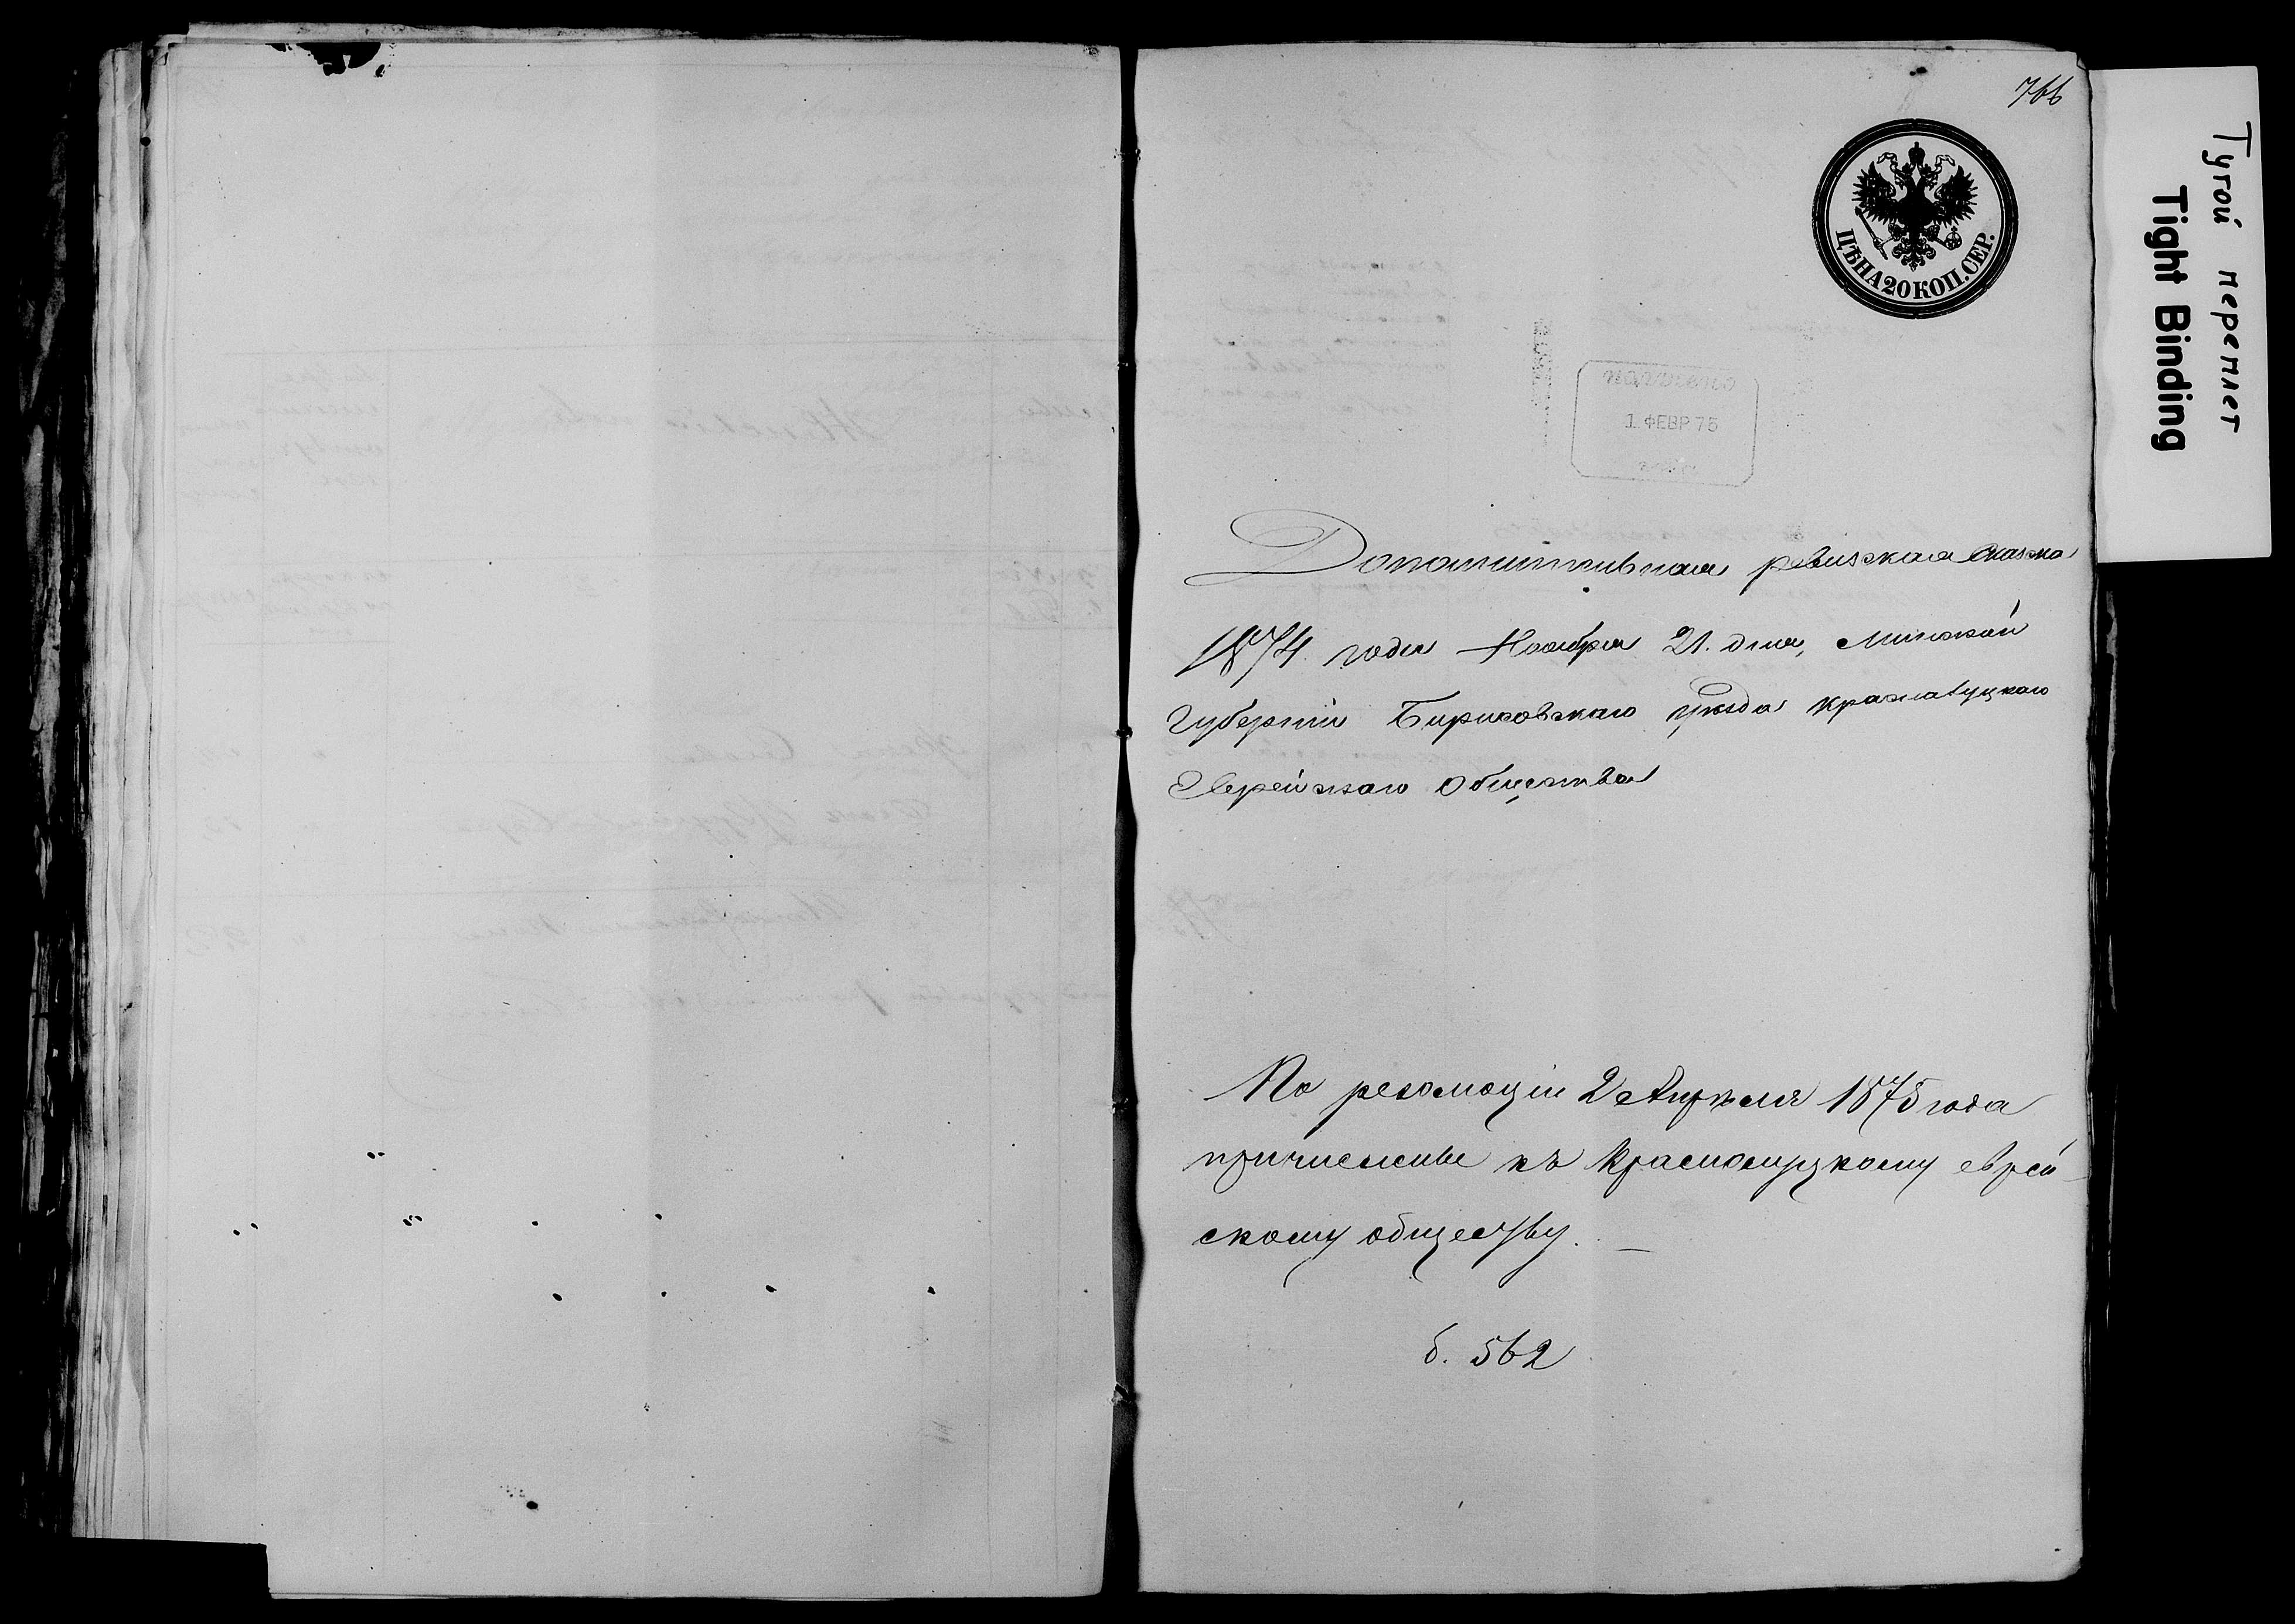 766
ЦѢНА 20 КОП. СЕР.
получено
1 ФЕВР 75
Дополнительная ревизская сказка
1874 года Ноября 21. дня, Минской
Губерніи Борисовскаго уѣзда Краснолуцкаго
Еврейскаго Общества
По резолюціи 2 Апрѣля 1875 года
причислены къ Краснолуцкому еврей-
скому обществу. —
б. 562
Тугой переплет
Tight Binding